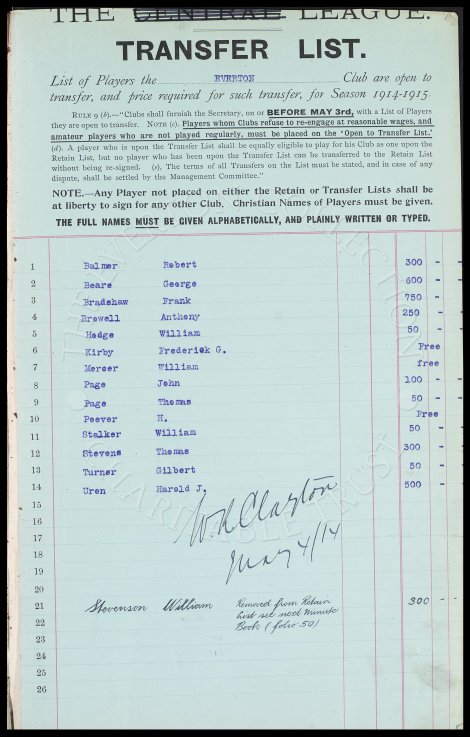 THE CENTRAL LEAGUE.
TRANSFER LIST.
List of Players the EVERTON Club are open to
transfer, and price required for such transfer, for Season 1914-1915.
RULE 9 (b).—"Clubs shall furnish the Secretary, on or BEFORE MAY 3rd, with a List of Players
they are open to transfer. NOTE (c). Players whom Clubs refuse to re-engage at reasonable wages, and
amateur players who are not played regularly, must be placed on the 'Open to Transfer List.'
(d). A player who is upon the Transfer List shall be equally eligible to play for his Club as one upon the
Retain List, but no player who has been upon the Transfer List can be transferred to the Retain List
without being re-signed. (e). The terms of all Transfers on the List must be stated, and in case of any
dispute, shall be settled by the Management Committee."
NOTE.—Any Player not placed on either the Retain or Transfer Lists shall be
at liberty to sign for any other Club. Christian Names of Players must be given.
THE FULL NAMES MUST BE GIVEN ALPHABETICALLY, AND PLAINLY WRITTEN OR TYPED.
1 Balmer Robert 300 - -
2 Beare George 600 - -
3 Bradshaw Frank 750 - -
4 Browell Anthony 250 - -
5 Hodge William 50 - -
6 Kirby Frederick G. Free
7 Mercer William free
8 Page John 100 - -
9 Page Thomas 50 - -
10 Peever H. Free
11 Stalker William 50 - -
12 Stevens Thomas 300 - -
13 Turner Gilbert 50 - -
14 Uren Harold J. 500 - -
15
16 W.R. Clayton
17
18 May 4/14
19
20
21 Stevenson William Removed from Retain 300 -
List see next Minute
22 Book (folio 50)
23
24
25
26
THE EVERTON COLLECTION
CHARITABLE TRUST